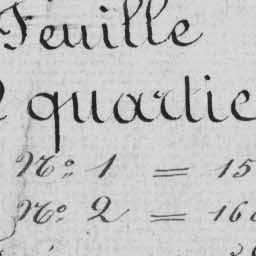 Feuille
quartie
N.o 1 = 15
N.o 2 = 16